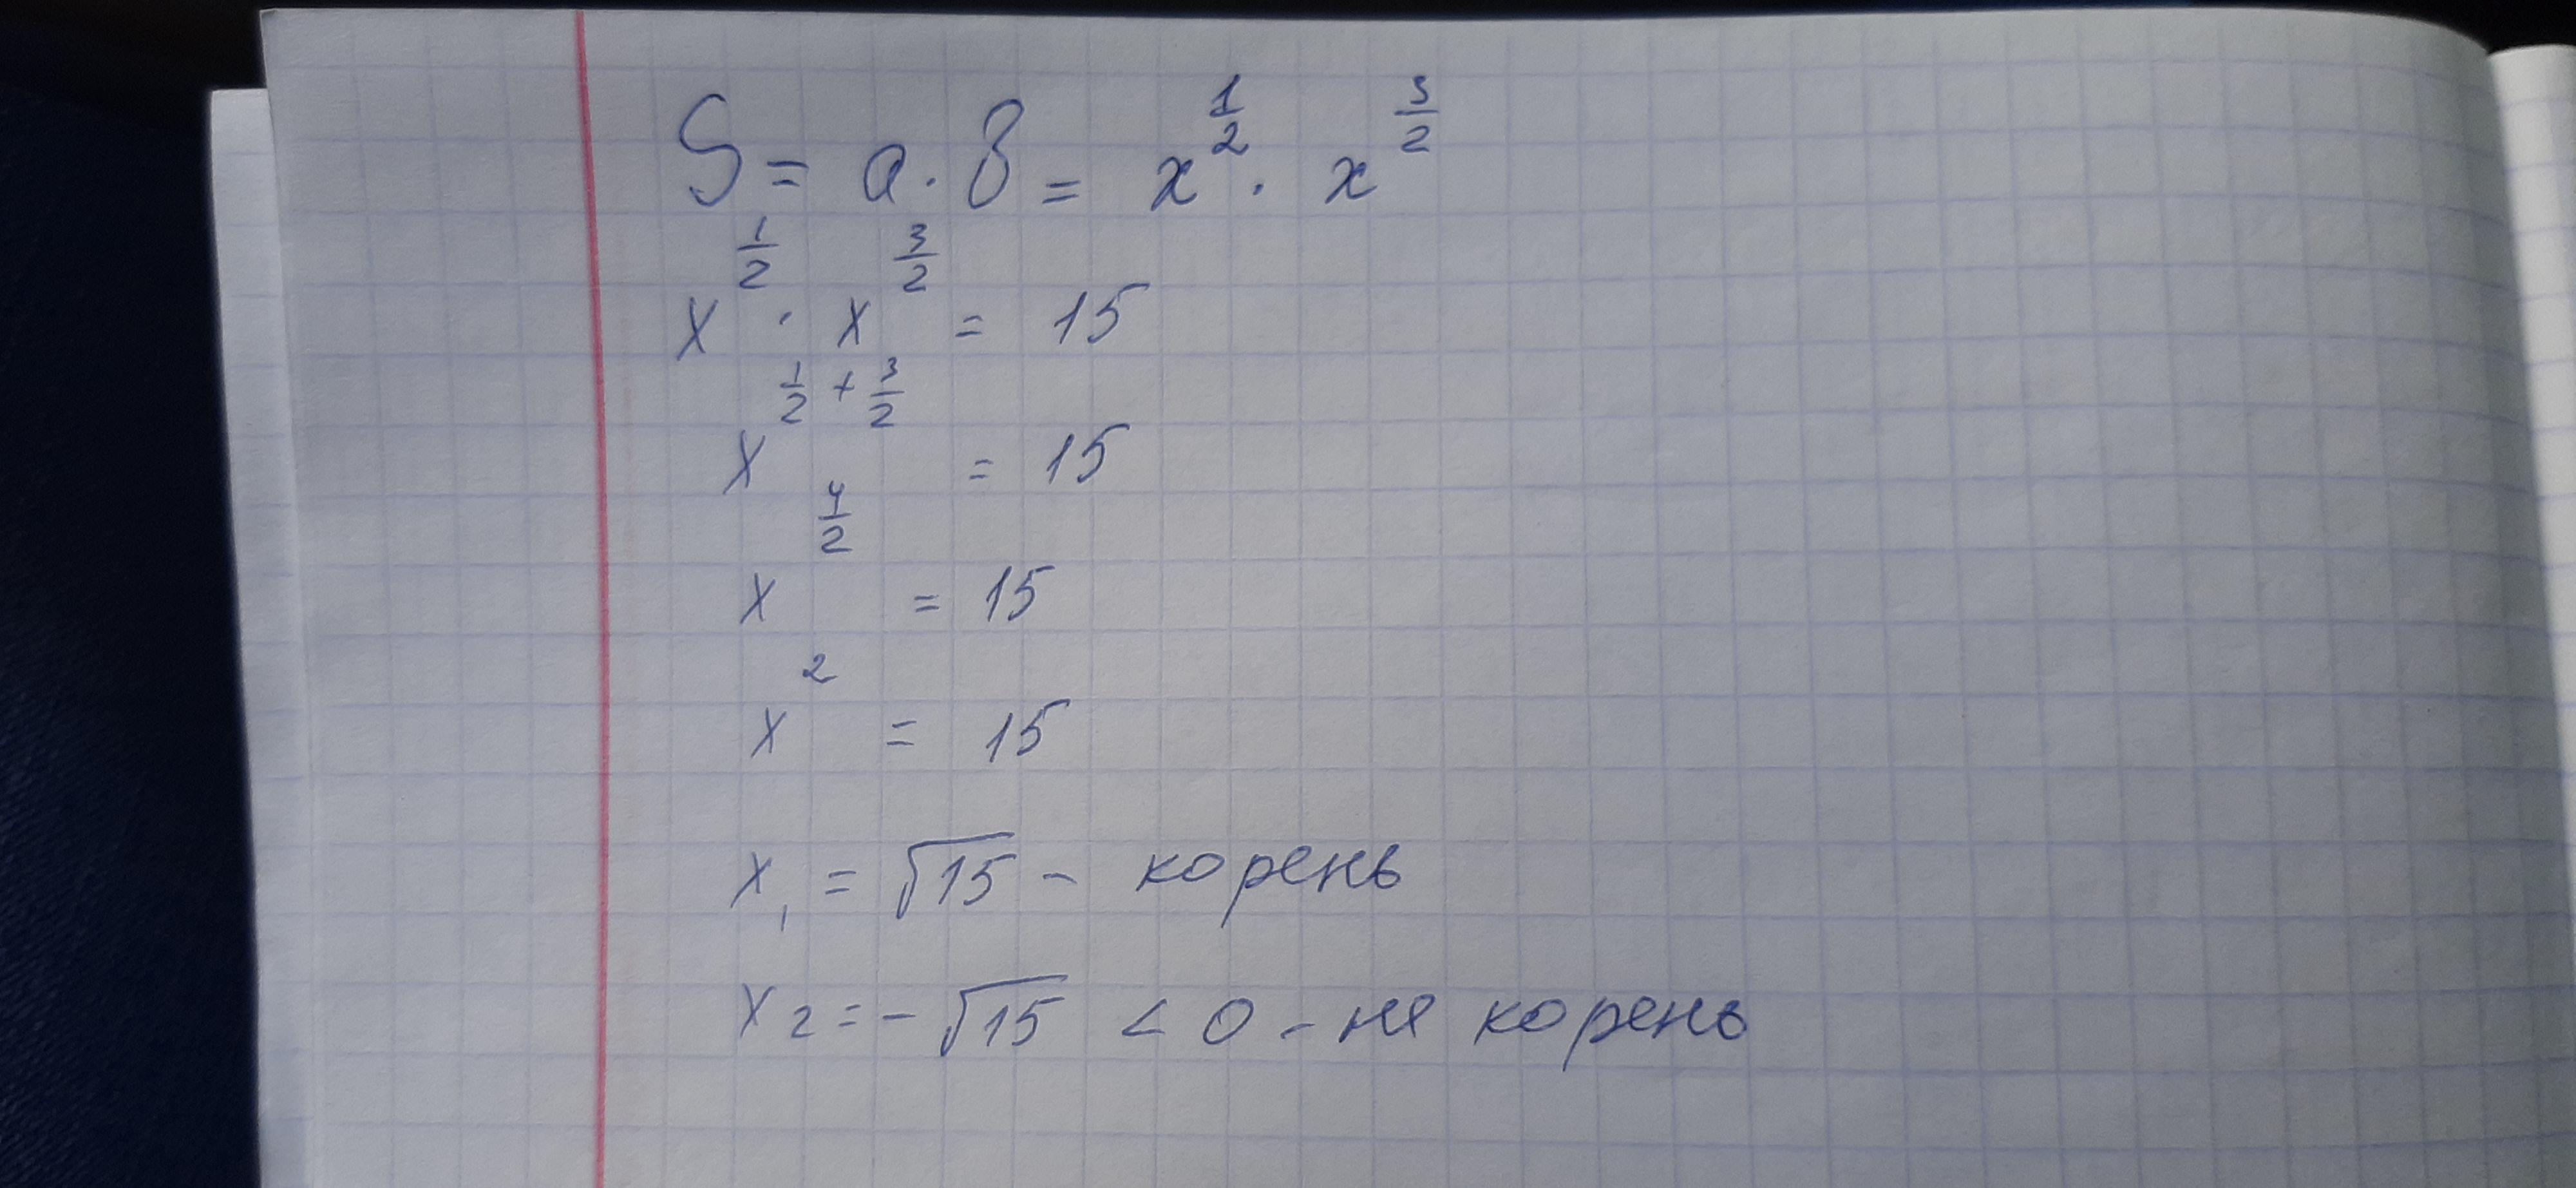 S = a · в = x^(1/2) · x^(3/2)
x^(1/2) · x^(3/2) = 15
x^(1/2 + 3/2) = 15
x^(4/2) = 15
x^2 = 15
x₁ = √15 - корень
x₂ = - √15 < 0 - не корень